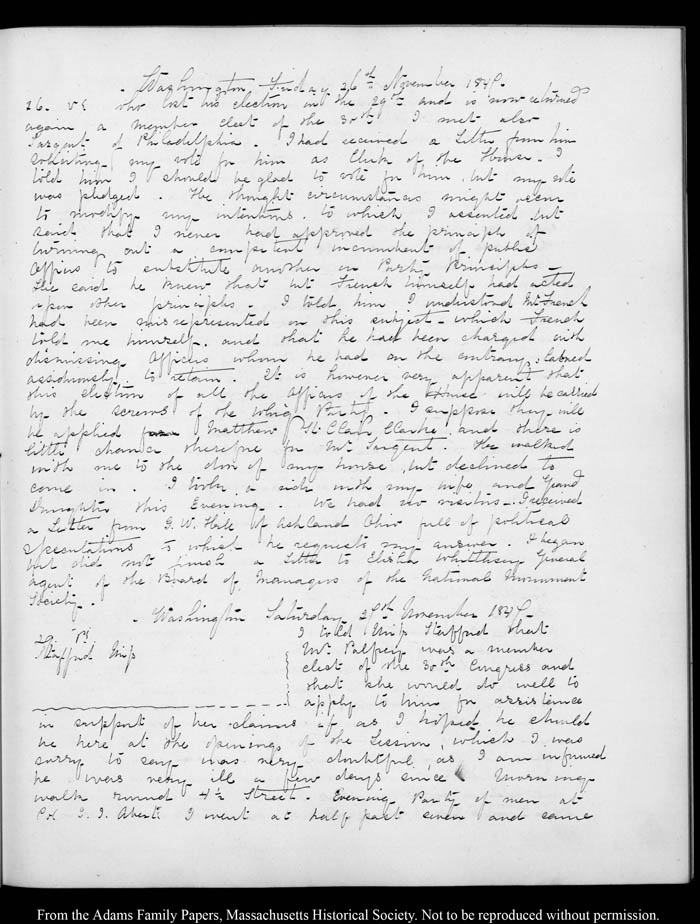 Washington Friday 26th November 1847.
26. VI who lost his election in the 29th and is now returned
again a member elect of the 30th I met also
Sargent of Philadelphia. I had received a Letter from him
soliciting my vote for him as Clerk of the House. I
told him I should be glad to vote for him but my vote
was pledged. He thought circumstances might occur
to modify my intentions. to which I assented but
said that I never had approved the principle of
turning out a competent incumbent of public
Offices to substitute another on Party Principles_
He said he knew that but French himself had acted
upon other principles. I told him I understood Mr French
had been misrepresented on this subject_ which French
told me himself. and that he had been charged with
dismissing Officers whom he had on the contrary, labored
assiduously to retain. It is however very apparent that
this election of all the Officers of the House will be carried
by the screws of the Whig Party. I suppose they will
be applied Matthew St. Clair Clarke and there is
little chance therefore for Mr Sargent. He walked
with me to the door of my house, but declined to
come in. I took a ride with my wife and Grand
Daughter this Evening. We had no visitors_ I received
a Letter from G. W. Hill of Ashland Ohio full of political
speculations to which he requests my answer. I began
but did not finish a Letter to Elisha Whittlesey General
Agent of the Board of Managers of the National Monument
Society.
Washington Saturday 27th November 1847.
27. VI
Stafford Miss
I told Miss Stafford that
Mr Palfrey was a member
elect of the 30th Congress and
that she would do well to
apply to him for assistance
in support of her claims if as I hoped he should
be here at the opening of the Session, which I was
sorry to say was very doubtful, as I am informed
he was very ill a few days since Morning
walk round 4½ Street. Evening Party of men at
Col J. J. Abert's I went at half past seven and came
From the Adams Family Papers, Massachusetts Historical Society. Not to be reproduced without permission.